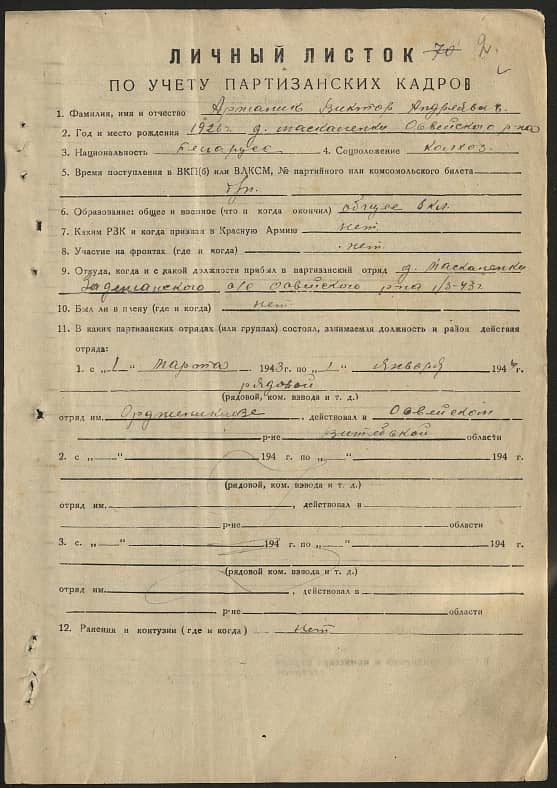 ЛИЧНЫЙ ЛИСТОК 70 2
ПО УЧЕТУ ПАРТИЗАНСКИХ КАДРОВ
1. Фамилия, имя и отчество Виктор Андреевич
2. Год и место рождения 1926г д. Москаленки Освейского р-на
3. Национальность Беларус 4. Соцположение колхоз.
5. Время поступления в ВКП(б) или ВЛКСМ, № партийного или комсомольского билета
б/п.
6. Образование: общее и военное (что и когда окончил) общее 8 кл.
7. Каким РВК и когда призван в Красную Армию нет
8. Участие на фронтах (где и когда) нет.
9. Откуда, когда и с какой должности прибыл в партизанский отряд д. Москаленки
с/с Освейского р-на 1/3-43г
10. Был ли в плену (где и когда) нет
11. В каких партизанских отрядах (или группах) состоял, занимаемая должность и район действия
отряда:
1. с „1“ марта 1943 г. по „1“ января 1944 г.
рядовой
(рядовой, ком. взвода и т. д.)
отряд им. Орджоникидзе, действовал в Освейском
р-не Витебской области
2. с „ “ 194 г. по „ “ 194 г.
(рядовой, ком. взвода и т. д.)
отряд им. , действовал в
р-не области
3. с. „ “ 194 г. по „ “ 194 г.
(рядовой ком. взвода и т. д.)
отряд им. , действовал в
р-не области
12. Ранения и контузии (где и когда) нет